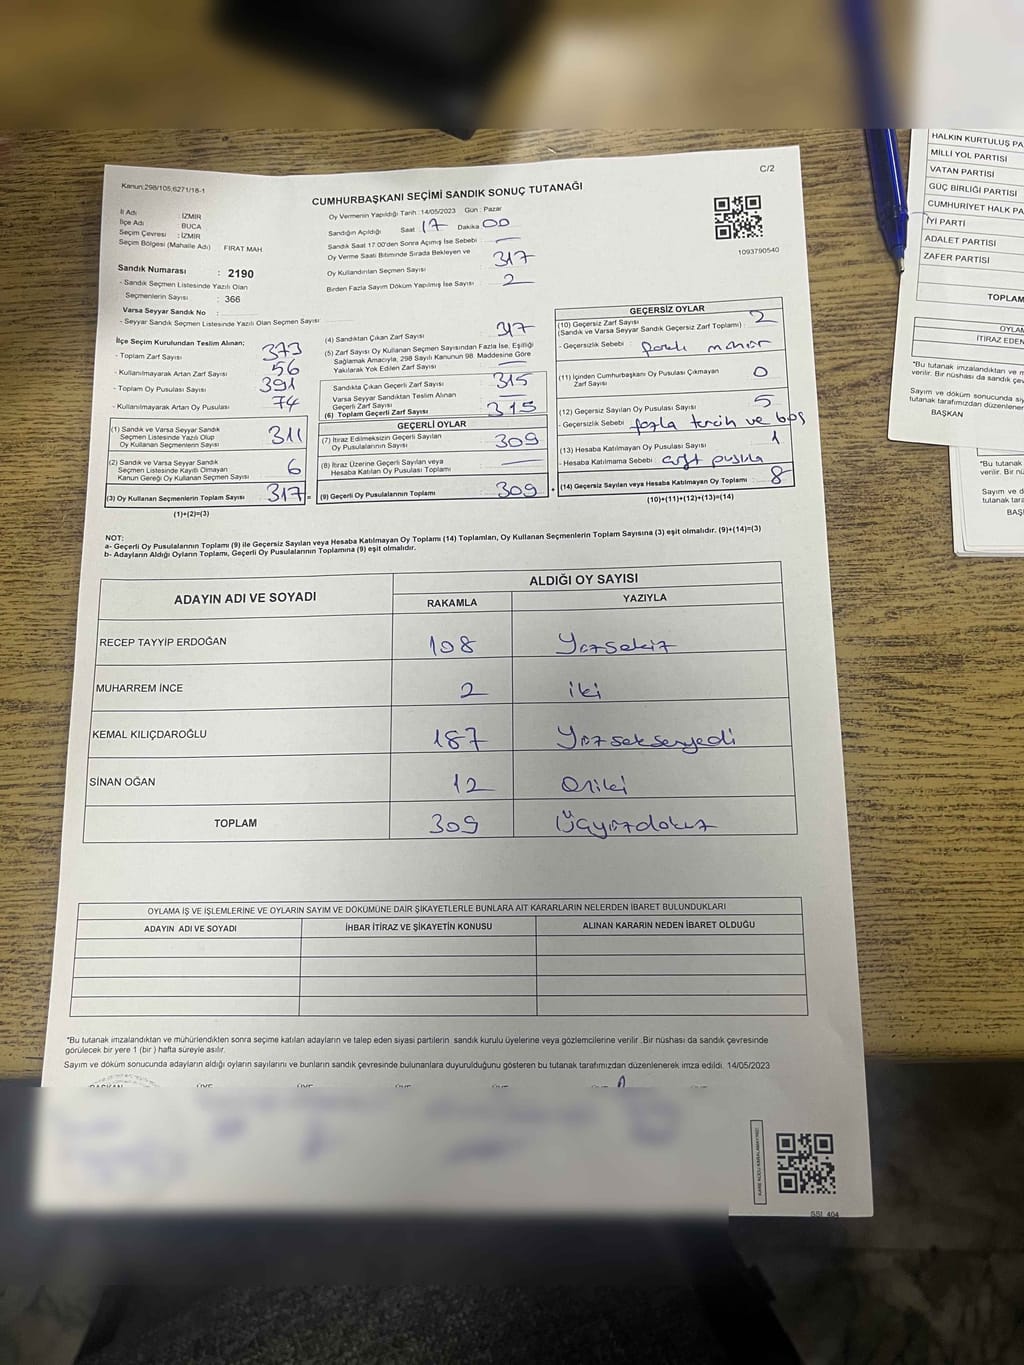 Kanun:298/105,6271/18-1
C/2
CUMHURBAŞKANI SEÇİMİ SANDIK SONUÇ TUTANAĞI
İl Adı : İZMİR
İlçe Adı : BUCA
Seçim Çevresi : İZMİR
Seçim Bölgesi (Mahalle Adı) FIRAT MAH
Sandık Numarası : 2190
- Sandık Seçmen Listesinde Yazılı Olan
Seçmenlerin Sayısı : 366
Varsa Seyyar Sandık No :
- Seyyar Sandık Seçmen Listesinde Yazılı Olan Seçmen Sayısı
Oy Vermenin Yapıldığı Tarih :14/05/2023 Gün : Pazar
Sandığın Açıldığı Saat 17 Dakika 00
Sandık Saat 17:00'den Sonra Açımış İse Sebebi —
Oy Verme Saati Bitiminde Sırada Bekleyen ve
Oy Kullandırılan Seçmen Sayısı 317
Birden Fazla Sayım Döküm Yapılmış İse Sayısı 2
1093790540
İlçe Seçim Kurulundan Teslim Alınan;
- Toplam Zarf Sayısı 373
- Kullanılmayarak Artan Zarf Sayısı 56
- Toplam Oy Pusulası Sayısı 391
- Kullanılmayarak Artan Oy Pusulası 74
(1) Sandık ve Varsa Seyyar Sandık
Seçmen Listesinde Yazılı Olup
Oy Kullanan Seçmenlerin Sayısı 311
(2) Sandık ve Varsa Seyyar Sandık
Seçmen Listesinde Kayıtlı Olmayan
Kanun Gereği Oy Kullanan Seçmen Sayısı 6
(3) Oy Kullanan Seçmenlerin Toplam Sayısı 317 =
(1)+(2)=(3)
(4) Sandıktan Çıkan Zarf Sayısı 317
(5) Zarf Sayısı Oy Kullanan Seçmen Sayısından Fazla İse, Eşitliği
Sağlamak Amacıyla, 298 Sayılı Kanunun 98. Maddesine Göre
Yakılarak Yok Edilen Zarf Sayısı —
Sandıkta Çıkan Geçerli Zarf Sayısı 315
Varsa Seyyar Sandıktan Teslim Alınan
Geçerli Zarf Sayısı —
(6) Toplam Geçerli Zarf Sayısı 315
GEÇERLİ OYLAR
(7) İtiraz Edilmeksizin Geçerli Sayılan
Oy Pusulalarının Sayısı 309
(8) İtiraz Üzerine Geçerli Sayılan veya
Hesaba Katılan Oy Pusulası Toplamı —
(9) Geçerli Oy Pusulalarının Toplamı 309 +
GEÇERSİZ OYLAR
(10) Geçersiz Zarf Sayısı
(Sandık ve Varsa Seyyar Sandık Geçersiz Zarf Toplamı) : 2
- Geçersizlik Sebebi : farklı mühür
(11) İçinden Cumhurbaşkanı Oy Pusulası Çıkmayan
Zarf Sayısı 0
(12) Geçersiz Sayılan Oy Pusulası Sayısı 5
- Geçersizlik Sebebi : fazla tercih ve boş
(13) Hesaba Katılmayan Oy Pusulası Sayısı 1
- Hesaba Katılmama Sebebi : çift pusula
(14) Geçersiz Sayılan veya Hesaba Katılmayan Oy Toplamı : 8
(10)+(11)+(12)+(13)=(14)
NOT:
a- Geçerli Oy Pusulalarının Toplamı (9) ile Geçersiz Sayılan veya Hesaba Katılmayan Oy Toplamı (14) Toplamları, Oy Kullanan Seçmenlerin Toplam Sayısına (3) eşit olmalıdır. (9)+(14)=(3)
b- Adayların Aldığı Oyların Toplamı, Geçerli Oy Pusulalarının Toplamına (9) eşit olmalıdır.
ADAYIN ADI VE SOYADI
ALDIĞI OY SAYISI
RAKAMLA YAZIYLA
RECEP TAYYİP ERDOĞAN 108 Yüzsekiz
MUHARREM İNCE 2 iki
KEMAL KILIÇDAROĞLU 187 Yüzseksenyedi
SİNAN OĞAN 12 Oniki
TOPLAM 309 Üçyüzdokuz
OYLAMA İŞ VE İŞLEMLERİNE VE OYLARIN SAYIM VE DÖKÜMÜNE DAİR ŞİKAYETLERLE BUNLARA AİT KARARLARIN NELERDEN İBARET BULUNDUKLARI
ADAYIN ADI VE SOYADI İHBAR İTİRAZ VE ŞİKAYETİN KONUSU ALINAN KARARIN NEDEN İBARET OLDUĞU
*Bu tutanak imzalandıktan ve mühürlendikten sonra seçime katılan adayların ve talep eden siyasi partilerin sandık kurulu üyelerine veya gözlemcilerine verilir. Bir nüshası da sandık çevresinde
görülecek bir yere 1 (bir ) hafta süreyle asılır.
Sayım ve döküm sonucunda adayların aldığı oyların sayılarını ve bunların sandık çevresinde bulunanlara duyurulduğunu gösteren bu tutanak tarafımızdan düzenlenerek imza edildi. 14/05/2023
SSI 404
HALKIN KURTULUŞ PA
MİLLİ YOL PARTİSİ
VATAN PARTİSİ
GÜÇ BİRLİĞİ PARTİSİ
CUMHURİYET HALK PA
İYİ PARTİ
ADALET PARTİSİ
ZAFER PARTİSİ
TOPLAM
OYLAM
İTİRAZ EDEN
*Bu tutanak imzalandıktan ve m
verilir. Bir nüshası da sandık çev
Sayım ve döküm sonucunda siy
tutanak tarafımızdan düzenlener
BAŞKAN
*Bu tutanak
verilir. Bir nü
Sayım ve d
tutanak tara
BAŞ